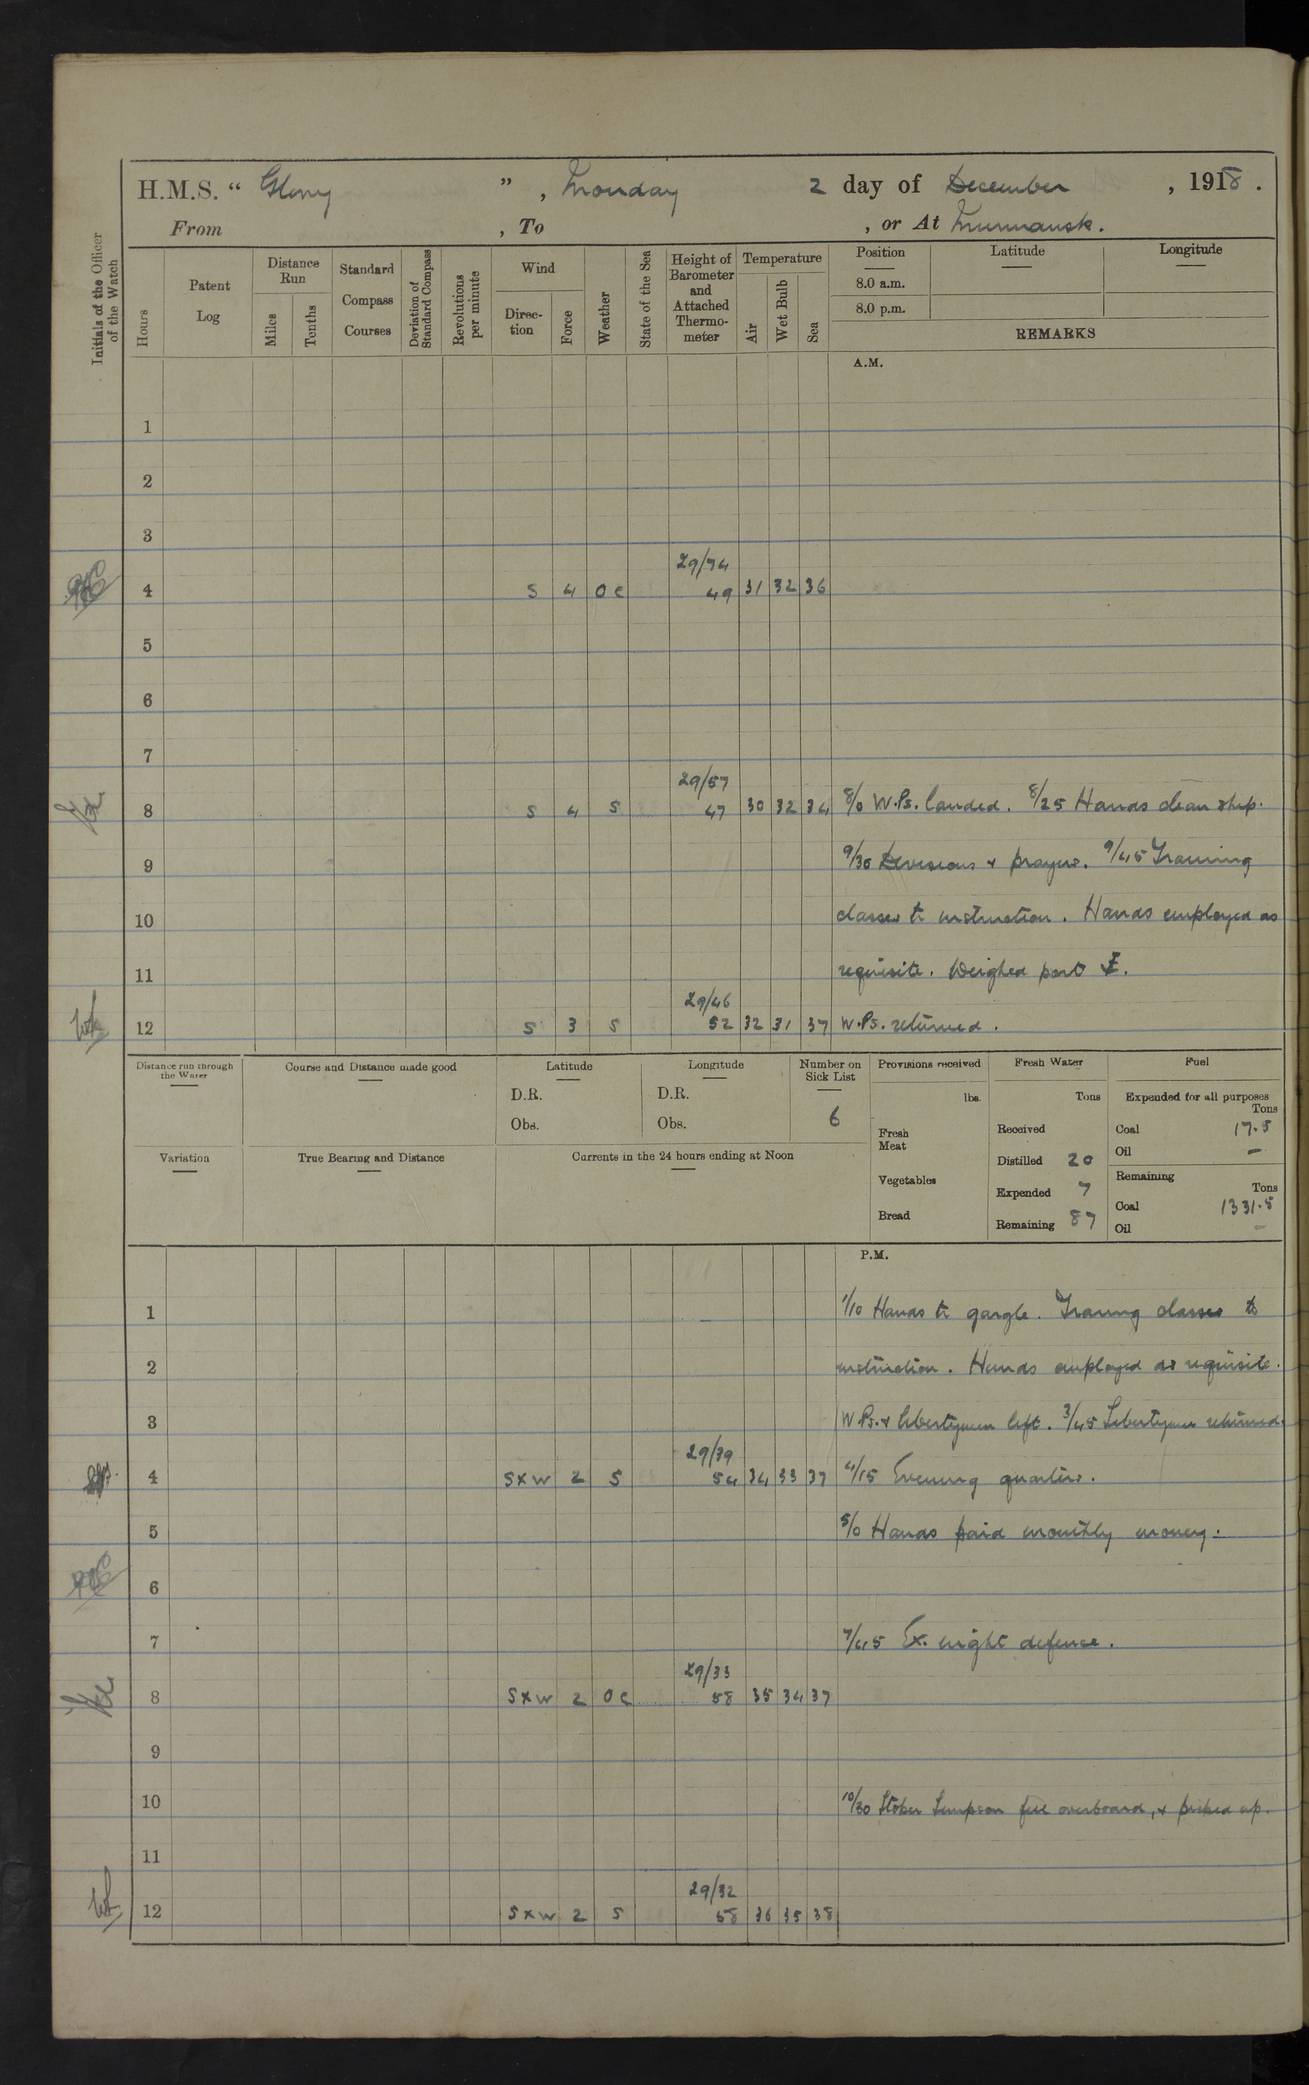 H.M.S. “ Glory ” , Monday 2 day of December , 1918 .
From , To , or At Murmansk.
Initials of the Officer of the Watch
Hours
Patent Log
Distance Run
Miles
Tenths
Standard Compass Courses
Deviation of Standard Compass
Revolutions per minute
Wind
Direction
Force
Weather
State of the Sea
Height of Barometer and Attached Thermometer
Temperature
Air
Wet Bulb
Sea
Position
Latitude
Longitude
8.0 a.m.
8.0 p.m.
REMARKS
A.M.
1
2
3
29/74
4 S 4 oc 49 31 32 36
5
6
7
29/57
8 S 4 S 47 30 32 34 8/0 W.Ps. landed. 8/25 Hands clean ship.
9 9/30 Divisions & prayers. 9/45 Training
10 classes to instruction. Hands employed as
11 requisite. Weighed port
29/46
12 S 3 S 52 32 31 37 W.Ps. returned.
Distance run through the Water
Course and Distance made good
Latitude
D.R.
Obs.
Longitude
D.R.
Obs.
Number on Sick List
6
Provisions received
lbs.
Fresh Meat
Vegetables
Bread
Fresh Water
Tons
Received
Distilled 20
Expended 7
Remaining 87
Fuel
Expended for all purposes
Tons
Coal 17.5
Oil –
Remaining
Tons
Coal 1331.5
Oil –
Variation
True Bearing and Distance
Currents in the 24 hours ending at Noon
P.M.
1 1/10 Hands to gargle. Training classes to
2 instruction. Hands employed as requisite.
3 W.Ps. & libertymen left. 3/45 Libertymen returned.
29/39
4 SXW 2 S 54 34 33 37 4/15 Evening quarters.
5 5/0 Hands paid monthly money.
6
7 7/45 Ex. night defence.
29/33
8 SXW 2 oc 58 35 34 37
9
10 10/30 Stoker Simpson fell overboard, & picked up.
11
29/32
12 SXW 2 S 58 36 35 38